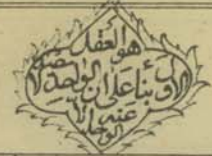 هو العقل
الاول بناء على ان الواحد لا يصدر
عنه الا
الواحد